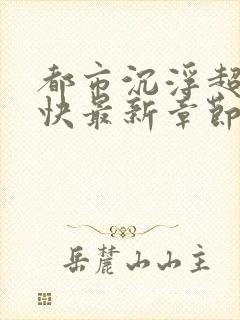 都市沉浮超
快最新章節
岳麓山山主